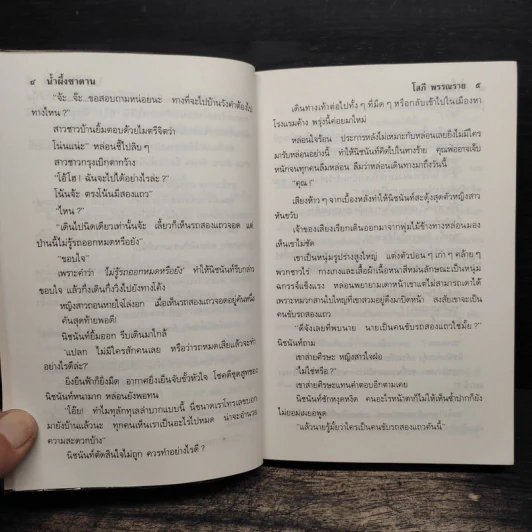 ๔ น้ำผึ้งซาตาน
"จ้ะ จ๊ะ...ขอสอบถามหน่อยนะ ทางที่จะไปบ้านวังคำต้องไป
ทางไหน ?"
สาวชาวบ้านยิ้มตอบด้วยไมตรีจิตว่า
"โน่นแน่ะ" หล่อนชี้ไปลิบๆ
สาวชาวกรุงเบิกตากว้าง
"โอ้โฮ ! ฉันจะไปได้อย่างไรล่ะ ?"
"โน้นจ้ะ ตรงโน้นมีสองแถว"
"ไหน ?"
"เดินไปนิดเดียวเท่านั้นจ้ะ เลี้ยวก็เห็นรถสองแถวจอด แต่
ป่านนี้ไม่รู้รถออกหมดหรือยัง"
"ขอบใจ"
เพราะคำว่า ไม่รู้รถออกหมดหรือยัง ทำให้นิชนันท์รีบกล่าว
ขอบใจ แล้วกึ่งเดินกึ่งวิ่งไปยังทางโค้ง
หญิงสาวถอนหายใจโล่งอก เมื่อเห็นรถสองแถวจอดอยู่คันหนึ่ง
คันสุดท้ายพอดี!
นิชนันท์ยิ้มออก รีบเดินมาใกล้
"แปลก ไม่มีใครสักคนเลย หรือว่ารถหมดเสียแล้วจะทำ
อย่างไรดีล่ะ ?"
ยิ่งยืนฟ้าก็ยิ่งมืด อากาศยิ่งเย็นจับขั้วหัวใจ โชคดีชุดสูทของ
นิชนันท์หนามาก หล่อนยังพอทน
"โอ๊ย! ทำไมทุลักทุเลลำบากแบบนี้ นี่ขนาดเราโทรเลขบอก
มายังบ้านแล้วนะ ทุกคนเห็นเราเป็นอะไรไปหมด น่าจะอำนวย
ความสะดวกบ้าง"
นิชนันท์ตัดสินใจไม่ถูก ควรทำอย่างไรดี ?
โสภี พรรณราย ๕
เดินทางเท้าต่อไปทั้งๆ ที่มืดๆ หรือกลับเข้าไปในเมืองหา
โรงแรมค้าง พรุ่งนี้ค่อยมาใหม่
หล่อนใจร้อน ประการหลังไม่เหมาะกับหล่อนเลยยิ่งไม่มีใคร
มารับหล่อนอย่างนี้ ทำให้นิชนันท์คิดไปในทางร้าย คุณพ่ออาจเจ็บ
หนักจนทุกคนลืมหล่อน ลืมว่าหล่อนเดินทางมาถึงวันนี้
"คุณ !"
เสียงห้าวๆ จากเบื้องหลังทำให้นิชนันท์สะดุ้งสุดตัวหญิงสาว
หันขวับ
เจ้าของเสียงเรียกเดินออกมาจากพุ่มไม้ข้างทางหล่อนมอง
เห็นเขาไม่ชัด
เขาเป็นหนุ่มรูปร่างสูงใหญ่ แต่งตัวปอนๆ เก่าๆ คล้ายๆ
พวกชาวไร่ กางเกงและเสื้อผ้าเนื้อหนาสีหม่นลักษณะเป็นหนุ่ม
ฉกรรจ์แข็งแรง หล่อนพยายามเดาหน้าเขาแต่ไม่สามารถเดาได้
เพราะหมวกสานใบใหญ่ที่เขาสวมอยู่ดึงมาปิดหน้า สงสัยเขาจะเป็น
คนขับรถสองแถว
"ดีจังเลยที่พบนาย นายเป็นคนขับรถสองแถวใช่มั้ย ?"
นิชนันท์ถาม
เขาส่ายศีรษะ หญิงสาวใจฝ่อ
"ไม่ใช่หรือ ?"
เขาส่ายศีรษะแทนคำตอบอีกตามเคย
นิชนันท์ชักหงุดหงิด คนอะไรหน้าตาก็ไม่ให้เห็นซ้ำปากก็ยัง
ไม่ยอมเผยอพูด
"แล้วนายรู้มั้ยว่าใครเป็นคนขับรถสองแถวคันนี้"